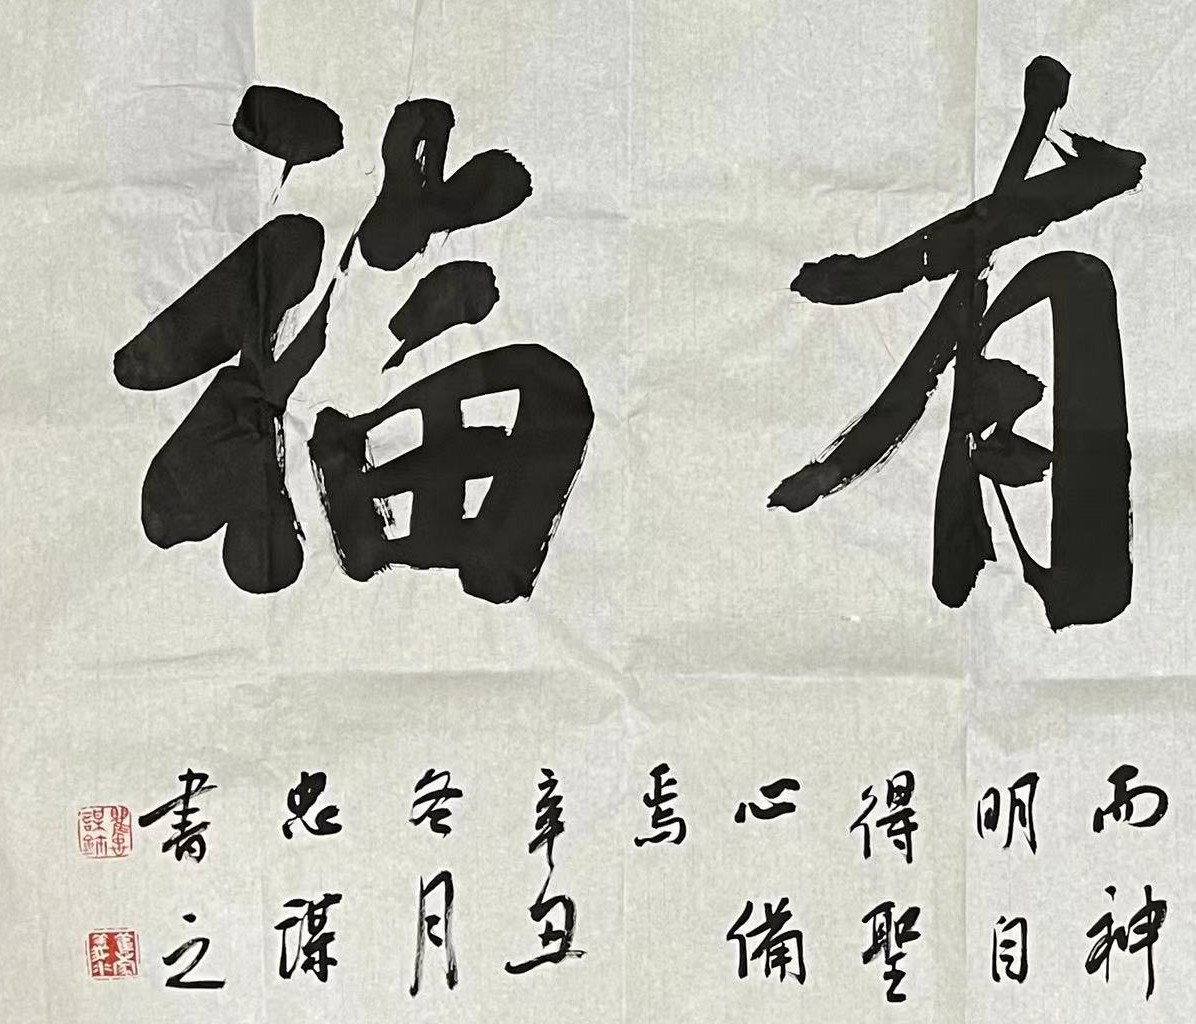 有福
而神
明自
得聖
心備
焉
辛丑
冬月
忠謀
書之